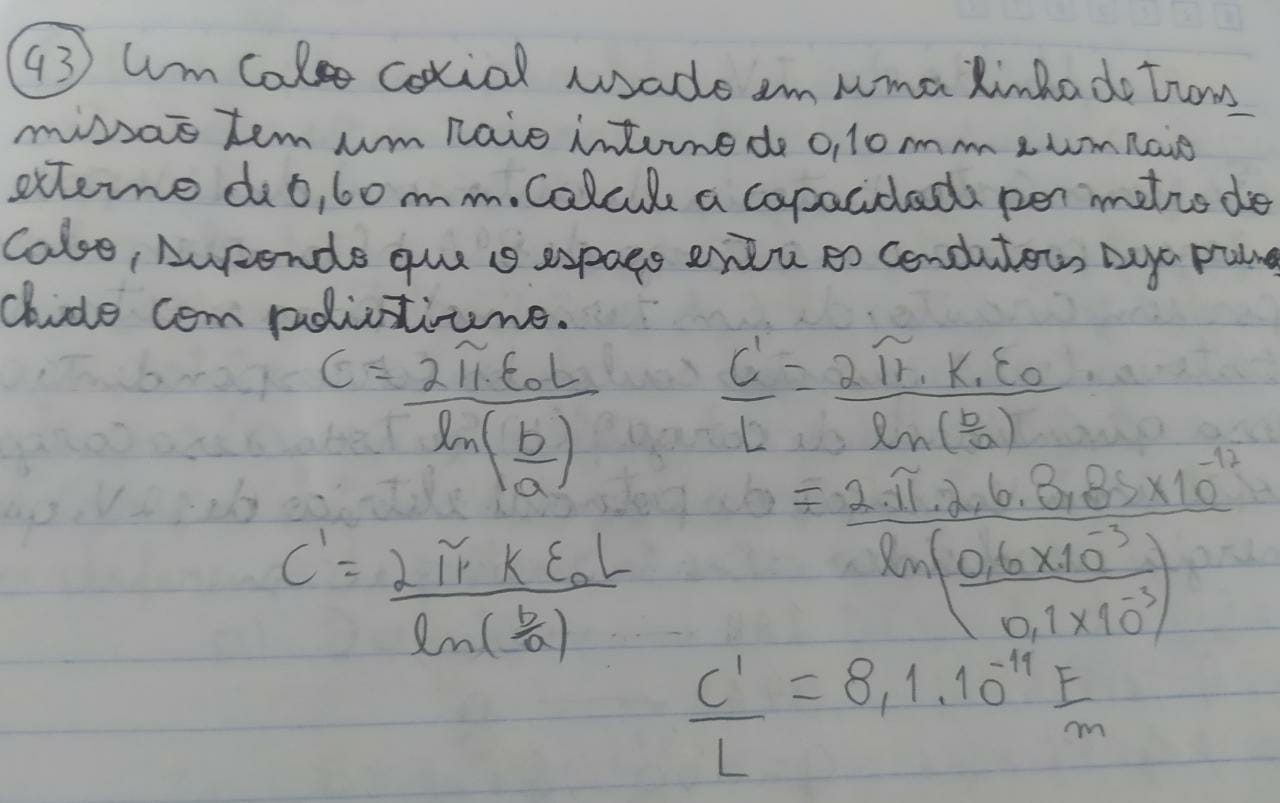 43) Um cabo coxial usado em uma linha de trans
missão tem um raio interno de 0,10 mm e um raio
externo de 0,60 mm. Calcule a capacidade por metro do
cabo, supondo que o espaço entre os condutores seja preen
chido com poliestireno.
C = 2π.ε₀L / ln(b/a)    C'/L = 2π.K.ε₀ / ln(b/a)
= 2.π.2,6.8,85×10⁻¹² / ln(0,6×10⁻³ / 0,1×10⁻³)
C' = 2πKε₀L / ln(b/a)
C'/L = 8,1.10⁻¹¹ F/m